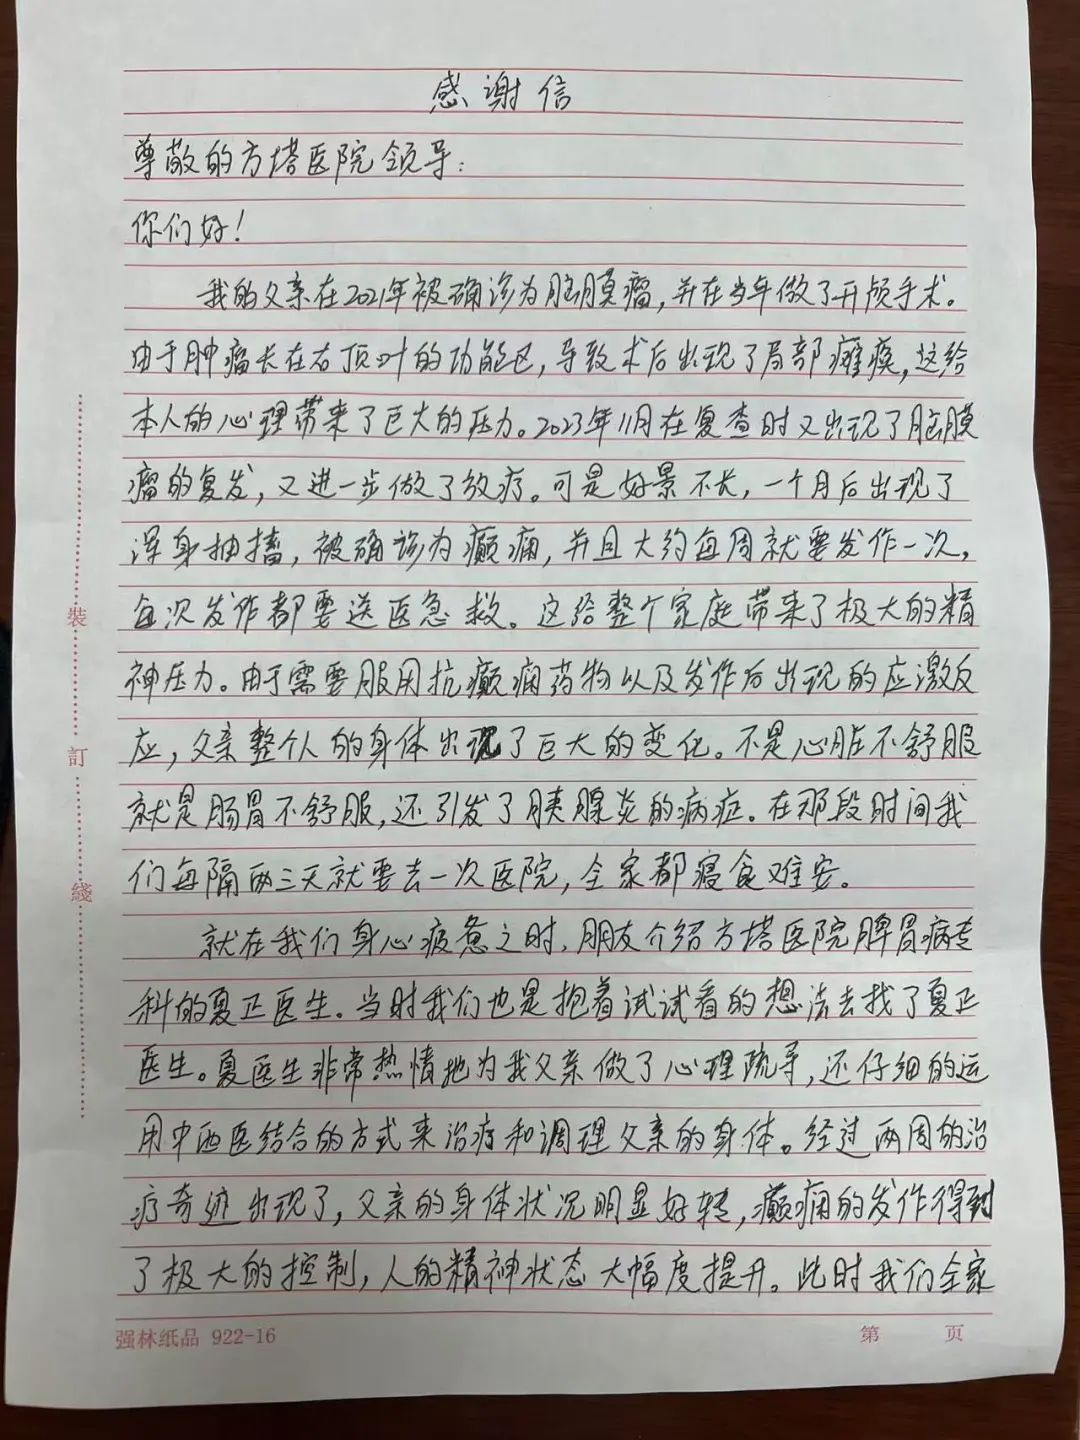 感谢信
尊敬的方塔医院领导:
你们好!
我的父亲在2021年被确诊为脑膜瘤,并在当年做了开颅手术。
由于肿瘤长在右顶叶的功能区,导致术后出现了局部瘫痪,这给
本人的心理带来了巨大的压力。2023年11月在复查时又出现了脑膜
瘤的复发,又进一步做了放疗。可是好景不长,一个月后出现了
浑身抽搐,被确诊为癫痫,并且大约每周就要发作一次,
每次发作都要送医急救。这给整个家庭带来了极大的精
神压力。由于需要服用抗癫痫药物以及发作后出现的应激反
应,父亲整个人的身体出现了巨大的变化。不是心脏不舒服
就是肠胃不舒服,还引发了胰腺炎的病症。在那段时间我
们每隔两三天就要去一次医院,全家都寝食难安。
就在我们身心疲惫之时,朋友介绍方塔医院脾胃病专
科的夏正医生。当时我们也是抱着试试看的想法去找了夏正
医生。夏医生非常热情地为我父亲做了心理疏导,还仔细的运
用中西医结合的方式来治疗和调理父亲的身体。经过两周的治
疗奇迹出现了,父亲的身体状况明显好转,癫痫的发作得到
了极大的控制,人的精神状态大幅度提升。此时我们全家
裝
訂
綫
强林纸品 922-16
第 页